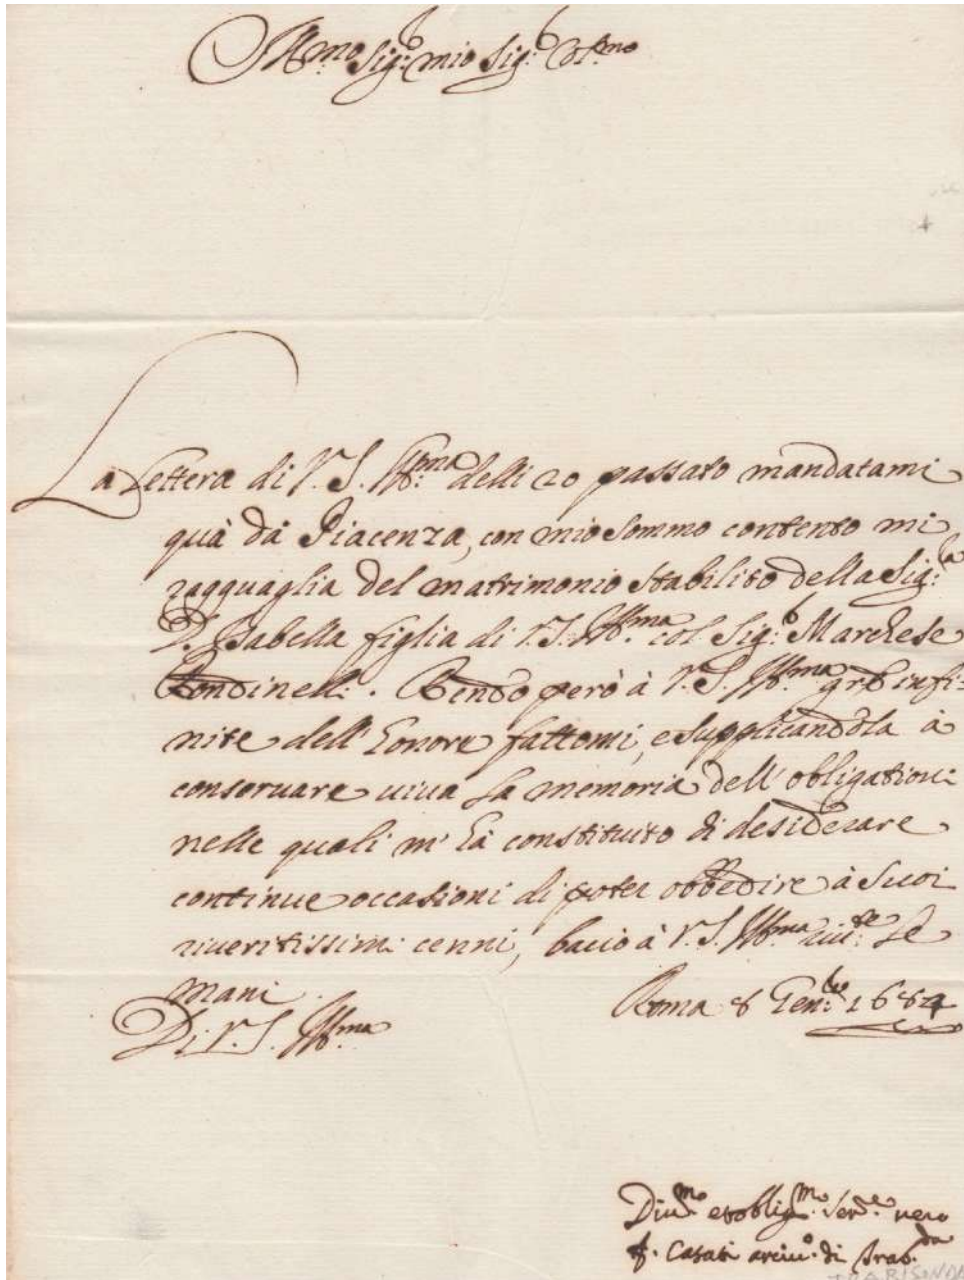 Ill.mo Sig.r mio Sig.r Col.mo
La Lettera di V. S. Ill.ma delli 20 passato mandatami
quà da Piacenza, con mio sommo contento mi
ragguaglia del matrimonio stabilito della Sig.ra
D. Isabella figlia di V. S. Ill.ma col Sig.r Marchese
Rondinelli. Rendo però à V. S. Ill.ma gr.e infi-
nite dell' honore fattomi, e supplicandola à
conservare viva la memoria dell' obligationi
nelle quali m' hà constituito di desiderare
continue occasioni di poter obbedire à suoi
riveritissimi cenni, bacio à V. S. Ill.ma riv.te le
mani.
Di V. S. Ill.ma
Roma 8 Gen.ro 1684
Div.mo et oblig.mo Ser.re vero
f. Casati arciv.o di Trab.da
TRABISONDA